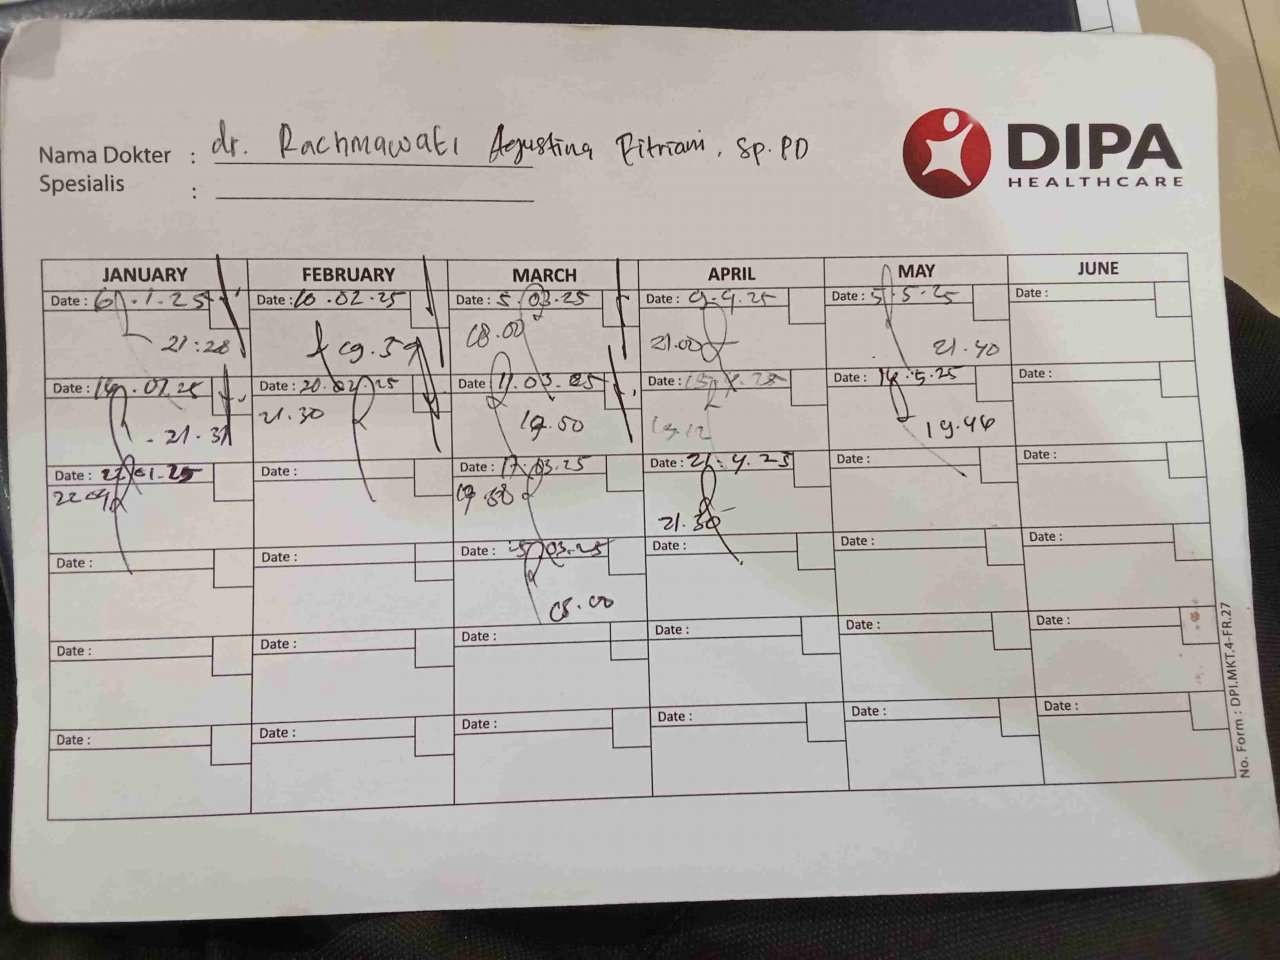 dr. Rachmawati Agustina Fitriani, Sp.PD
Nama Dokter :
Spesialis :
DIPA
HEALTHCARE
JANUARY FEBRUARY MARCH APRIL MAY JUNE
Date : 6.1.25 Date : 10.02.25 Date : 5.03.25 Date : 9.4.25 Date : 5.5.25 Date :
21:28 19.39 08.00 21.00 21.40
Date : Date : 20.02.25 Date : 11.03.25 Date : Date : 14.5.25 Date :
21.30 19.50 19.12 19.46
Date : 22.01.25 Date : Date : 17.03.25 Date : 21.4.25 Date : Date :
21.30
Date : Date : Date : Date : Date : Date :
08.00
Date : Date : Date : Date : Date : Date :
Date : Date : Date : Date : Date : Date :
No. Form : DPI.MKT.4-FR.27